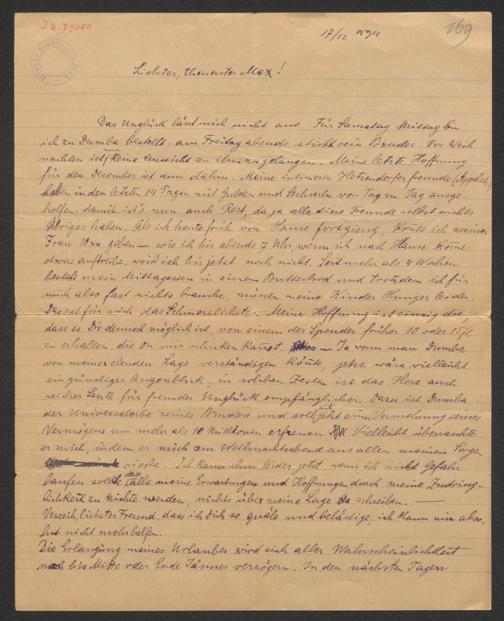 I.N. 79080
17/12
169
Liebster, theuerster Max!
Das Unglück lässt mich nicht aus. Für Samstag Mittag bin
ich zu Dumba bestellt, am Freitag abends stirbt sein Bruder. Vor Weih
nachten ist keine Aussicht zu ihm zu gelangen. Meine letzte Hoffnung
für den December ist nun dahin. Meine intimeren Hetzendorfer Freunde
haben in den letzten 14 Tagen mit Gulden und Sechserln von Tag zu Tag ausge-
holfen, damit ist's nun auch Rest, da ja alle diese Freunde selbst nichts
übriges haben. Als ich heute früh von Hause fortgieng, konnte ich meiner
Frau 10 xr geben — wie ich bis abends 7 Uhr, wenn ich nach Hause komme
etwas auftreibe, weiß ich bis jetzt noch nicht. Seit mehr als 4 Wochen
besteht mein Mittagessen in einem Butterbrod und trotzdem ich für
mich also fast nichts brauche, müssen meine Kinder Hunger leiden
Das ist für mich das Schmerzlichste. Meine Hoffnung ist einzig die,
dass es Dir dennoch möglich ist, von einem der Spender früher 10 oder 15 fl
zu erhalten, die Du mir schicken kannst. — Ja wenn man Dumba
von meiner elenden Lage verständigen könnte, jetzt wäre vielleicht
ein günstiger Augenblick, in solchen Zeiten ist das Herz auch
reicher Leute für fremdes Unglück empfänglicher. Dazu ist Dumba
der Universalerbe seines Bruders und soll sich einer Vermehrung seines
Vermögens um mehr als 10 Millionen erfreuen. Vielleicht überraschte
er mich, indem er mich am Weihnachtsabend aus allen meinen Sorgen
risse. Ich kann ihm leider jetzt, wenn ich nicht Gefahr
laufen sollte, dass alle meine Erwartungen und Hoffnungen durch meine Zudring-
lichkeit zu nichte werden, nichts über meine Lage schreiben. —
Verzeih, liebster Freund, dass ich Dich so quäle und belästige, ich kann mir abso-
lut nicht mehr helfen.
Die Erlangung meines Urlaubes wird sich aller Wahrscheinlichkeit
nach bis Mitte oder Ende Jänner verzögern. In den nächsten Tagen